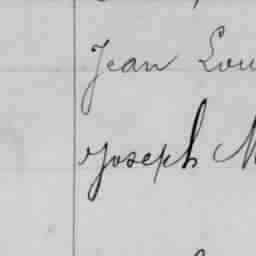 Jean Lou
Joseph M